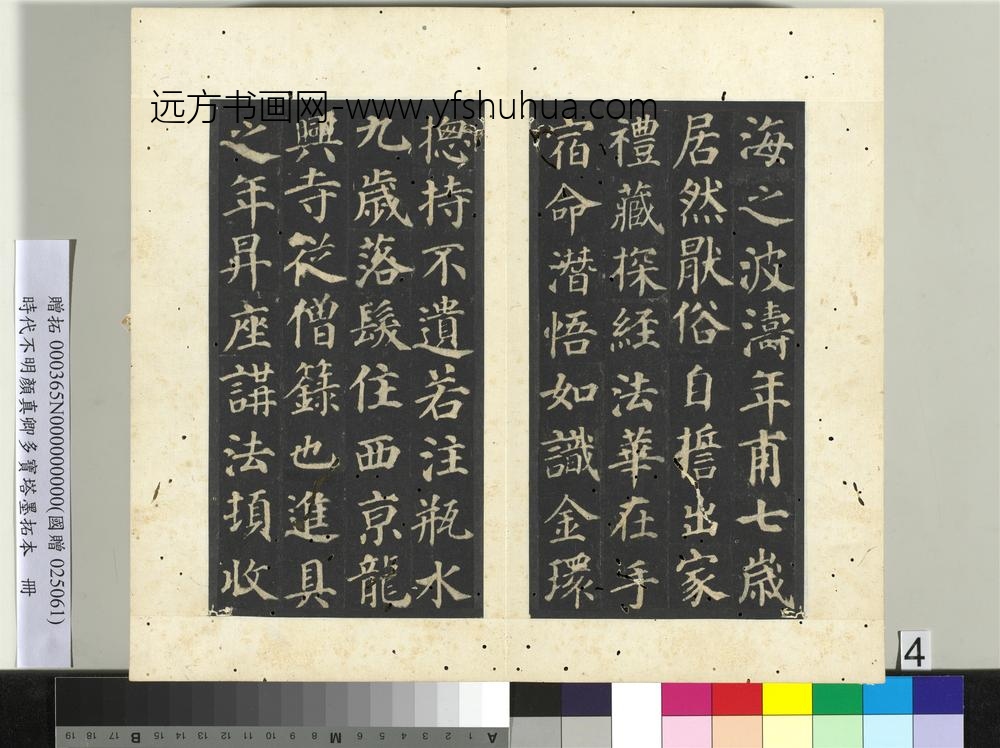 远方书画网-www.yfshuhua.com
海之波濤年甫七歲
居然厭俗自誓出家
禮藏探經法華在手
宿命潛悟如識金環
揔持不遺若注瓶水
九歲落髮住西京龍
興寺從僧籙也進具
之年昇座講法頓收
贈拓 000365N000000000(國贈 025061)
時代不明顏真卿多寶塔墨拓本 冊
4
A 1 2 3 4 5 6 M 8 9 10 11 12 13 14 15 B 17 18 19